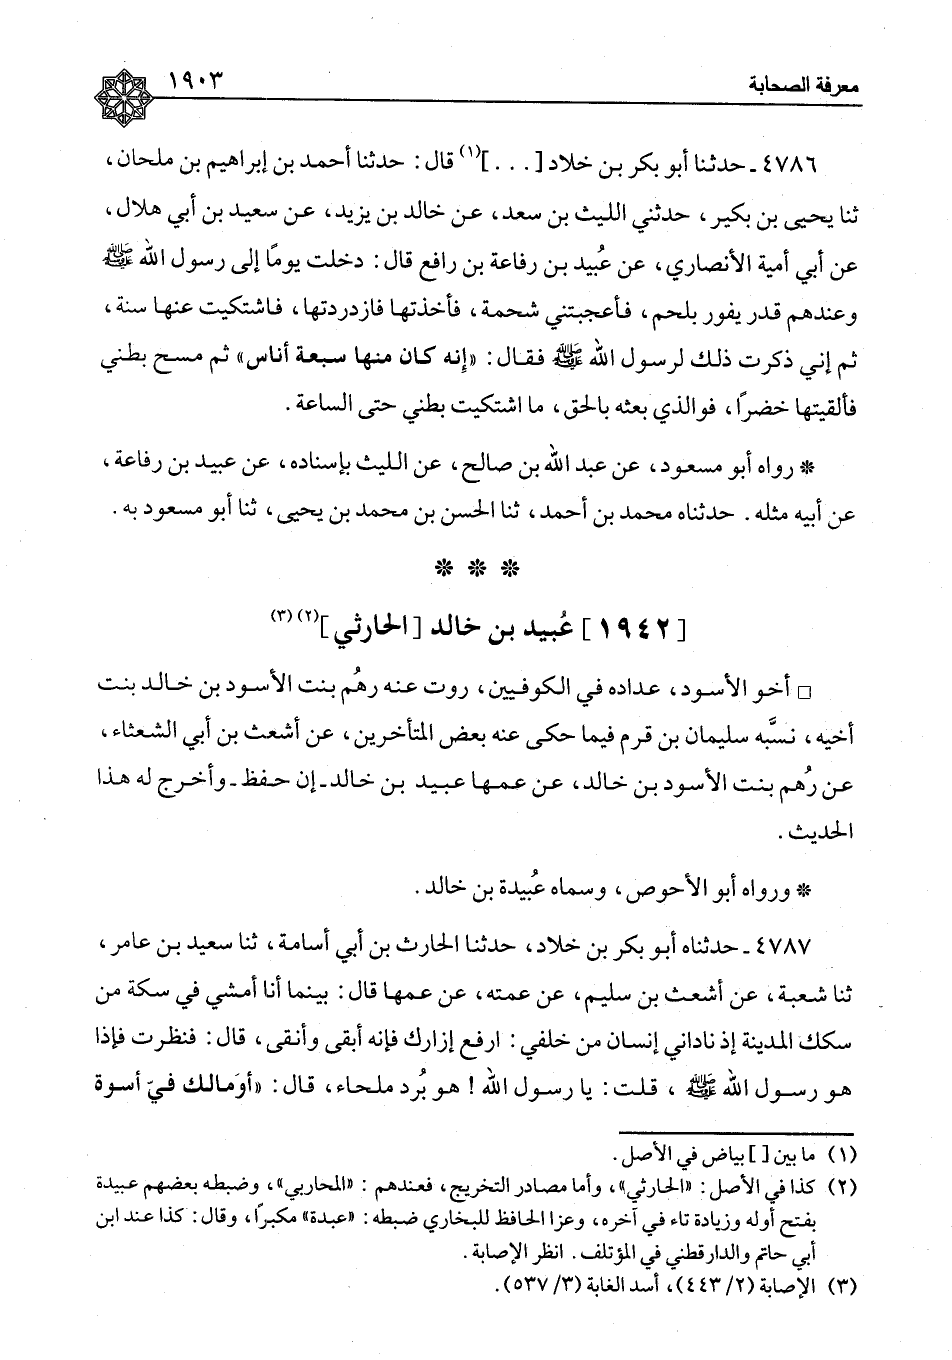 معرفة الصحابة ١٩٠٣
٤٧٨٦ ـ حدثنا أبو بكر بن خلاد [ . . . ](١) قال : حدثنا أحمد بن إبراهيم بن ملحان ،
ثنا يحيى بن بكير ، حدثني الليث بن سعد، عن خالد بن يزيد، عن سعيد بن أبي هلال ،
عن أبي أمية الأنصاري ، عن عُبيد بن رفاعة بن رافع قال : دخلت يومًا إلى رسول الله ﷺ
وعندهم قدر يفور بلحم ، فأعجبتني شحمة ، فأخذتها فازدردتها ، فاشتكيت عنها سنة ،
ثم إني ذكرت ذلك لرسول الله ﷺ فقال : «إنه كان منها سبعة أناس» ثم مسح بطني
فألقيتها خضرًا ، فوالذي بعثه بالحق ، ما اشتكيت بطني حتى الساعة .
* رواه أبو مسعود، عن عبد الله بن صالح ، عن الليث بإسناده ، عن عبيد بن رفاعة ،
عن أبيه مثله . حدثناه محمد بن أحمد ، ثنا الحسن بن محمد بن يحيى ، ثنا أبو مسعود به .
* * *
[١٩٤٢] عُبيد بن خالد [الحارثي](٢)(٣)
□ أخو الأسود، عداده في الكوفيين ، روت عنه رهُم بنت الأسود بن خالد بنت
أخيه ، نسَّبه سليمان بن قرم فيما حكى عنه بعض المتأخرين ، عن أشعث بن أبي الشعثاء ،
عن رُهم بنت الأسود بن خالد، عن عمها عبيد بن خالد ـ إن حفظ ـ وأخرج له هذا
الحديث .
* ورواه أبو الأحوص ، وسماه عُبيدة بن خالد .
٤٧٨٧ ـ حدثناه أبو بكر بن خلاد، حدثنا الحارث بن أبي أسامة ، ثنا سعيد بن عامر ،
ثنا شعبة ، عن أشعث بن سليم ، عن عمته ، عن عمها قال : بينما أنا أمشي في سكة من
سكك المدينة إذ ناداني إنسان من خلفي : ارفع إزارك فإنه أبقى وأنقى ، قال : فنظرت فإذا
هو رسول الله ﷺ ، قلت : يا رسول الله ! هو بُرد ملحاء ، قال : «أوَمالك فيّ أسوة
(١) ما بين [ ] بياض في الأصل .
(٢) كذا في الأصل : «الحارثي» ، وأما مصادر التخريج ، فعندهم : «المحاربي» ، وضبطه بعضهم عبيدة
بفتح أوله وزيادة تاء في آخره ، وعزا الحافظ للبخاري ضبطه : «عبدة» مكبرًا ، وقال : كذا عند ابن
أبي حاتم والدارقطني في المؤتلف . انظر الإصابة .
(٣) الإصابة (٢/ ٤٤٣)، أسد الغابة (٣/ ٥٣٧).